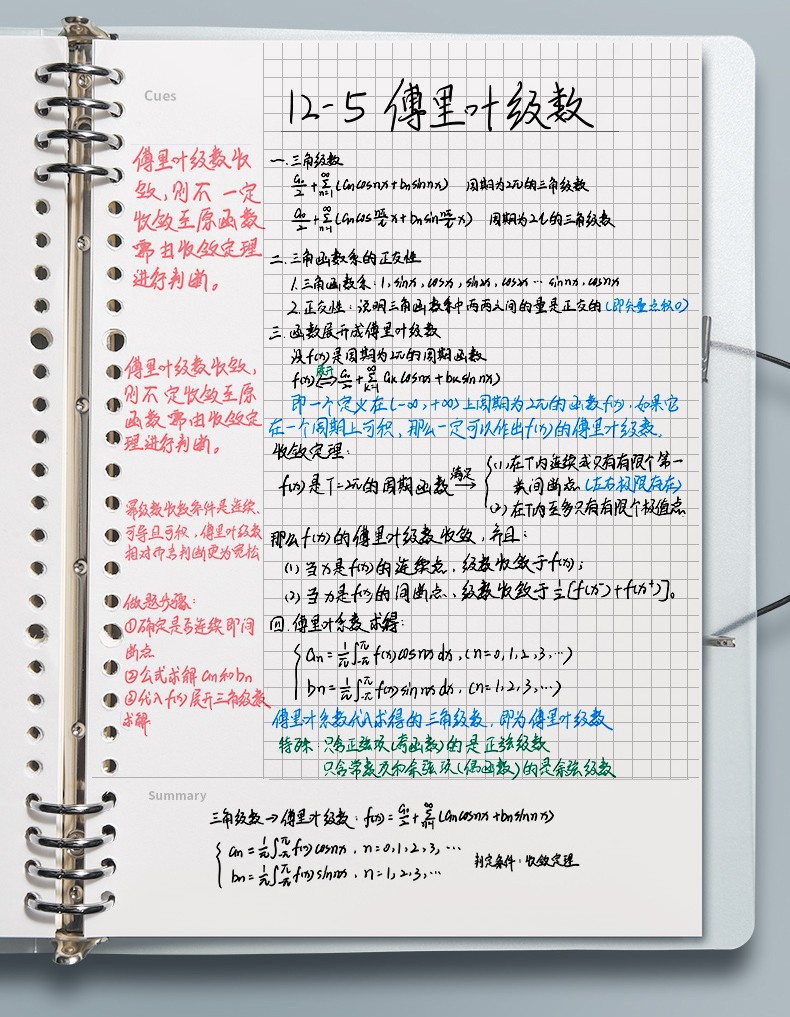 Cues
12-5 傅里叶级数
傅里叶级数收
敛,则不一定
收敛至原函数
需由收敛定理
进行判断。
傅里叶级数收敛,
则不定收敛至原
函数需由收敛定
理进行判断。
幂级数收敛条件是连续、
可导且可积,傅里叶级数
相对而言判断更为宽松
做题步骤:
①确定是否连续即间
断点
②公式求解an和bn
③代入f(x)展开三角级数
求解
一.三角级数
a₀/2+∑(n=1,∞)(ancosnx+bnsinnx) 周期为2π的三角级数
a₀/2+∑(n=1,∞)(ancos nπ/l x+bnsin nπ/l x) 周期为2l的三角级数
二.三角函数系的正交性
1.三角函数系:1,sinx,cosx,sin2x,cos2x…sinnx,cosnx
2.正交性:说明三角函数系中两两之间的量是正交的(即矢量点积0)
三.函数展开成傅里叶级数
设f(x)是周期为2π的周期函数
f(x) 展开⇒ a₀/2+∑(k=1,∞) akcosnx+bksinnx)
即一个定义在(-∞,+∞)上周期为2π的函数f(x),如果它
在一个周期上可积,那么一定可以作出f(x)的傅里叶级数。
收敛定理:
f(x)是T=2π的周期函数 满足→ {(1)在T内连续或只有有限个第一
类间断点(左右极限存在)
(2)在T内至多只有有限个极值点
那么f(x)的傅里叶级数收敛,并且:
(1)当x是f(x)的连续点,级数收敛于f(x);
(2)当x是f(x)的间断点,级数收敛于½[f(x⁻)+f(x⁺)]。
四.傅里叶系数求得:
{an=1/π∫(-π,π)f(x)cosnxdx,(n=0,1,2,3,…)
bn=1/π∫(-π,π)f(x)sinnxdx,(n=1,2,3,…)
傅里叶系数代入求得的三角级数,即为傅里叶级数
特殊:只含正弦项(奇函数)的是正弦级数
只含常数项和余弦项(偶函数)的是余弦级数
Summary
三角级数→傅里叶级数:f(x)=a₀/2+∑(n=1,∞)(ancosnx+bnsinnx)
{an=1/π∫(-π,π)f(x)cosnx,n=0,1,2,3,…
bn=1/π∫(-π,π)f(x)sinnx,n=1,2,3,…
判定条件:收敛定理